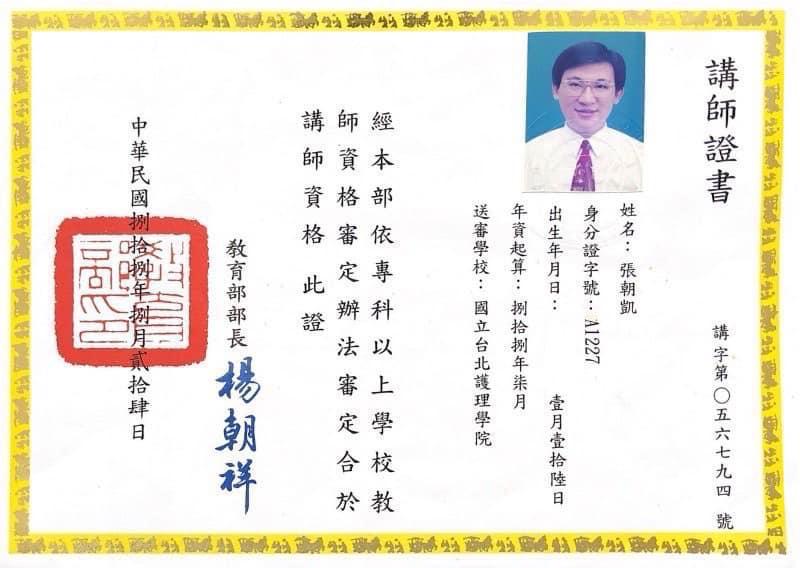 講師證書
講字第〇五六七九四號
姓名：張朝凱
身分證字號：A1227
出生年月日：　壹月壹拾陸日
年資起算：捌拾捌年柒月
送審學校：國立台北護理學院
經本部依專科以上學校教
師資格審定辦法審定合於
講師資格　此證
教育部部長　楊朝祥
中華民國捌拾捌年捌月貳拾肆日